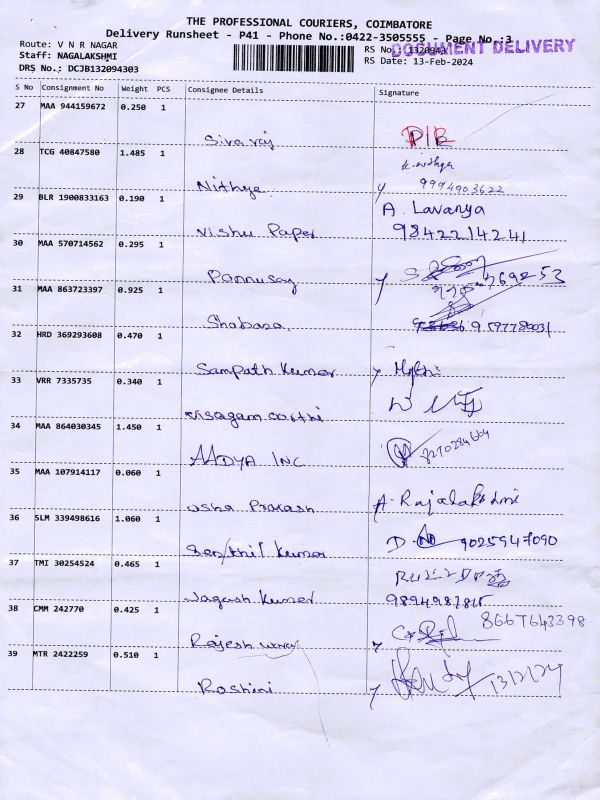 THE PROFESSIONAL COURIERS, COIMBATORE
Delivery Runsheet - P41 - Phone No.:0422-3505555 - Page No.:3
Route: V N R NAGAR
RS No.
DOCUMENT DELIVERY
Staff: NAGALAKSHMI
RS Date: 13-Feb-2024
DRS No.: DCJB132094303
S No Consignment No Weight PCS Consignee Details Signature
27 MAA 944159672 0.250 1
Sivaraj
28 TCG 40847580 1.485 1
Nithya 9994903622
29 BLR 1900833163 0.190 1 A. Lavanya
Vishu Paper 9842214241
30 MAA 570714562 0.295 1
Pannusay
31 MAA 863723397 0.925 1
Shabara
32 HRD 369293608 0.470 1
Sampath Kumar
33 VRR 7335735 0.340 1
34 MAA 864030345 1.450 1
AADYA INC
35 MAA 107914117 0.060 1
Usha Prakash A. Rajalakshmi
36 SLM 339498616 1.060 1
Senthil Kumar 9025947090
37 TMI 30254524 0.465 1
Kumar
38 CMM 242770 0.425 1
Rajesh
39 MTR 2422259 0.510 1
Roshini